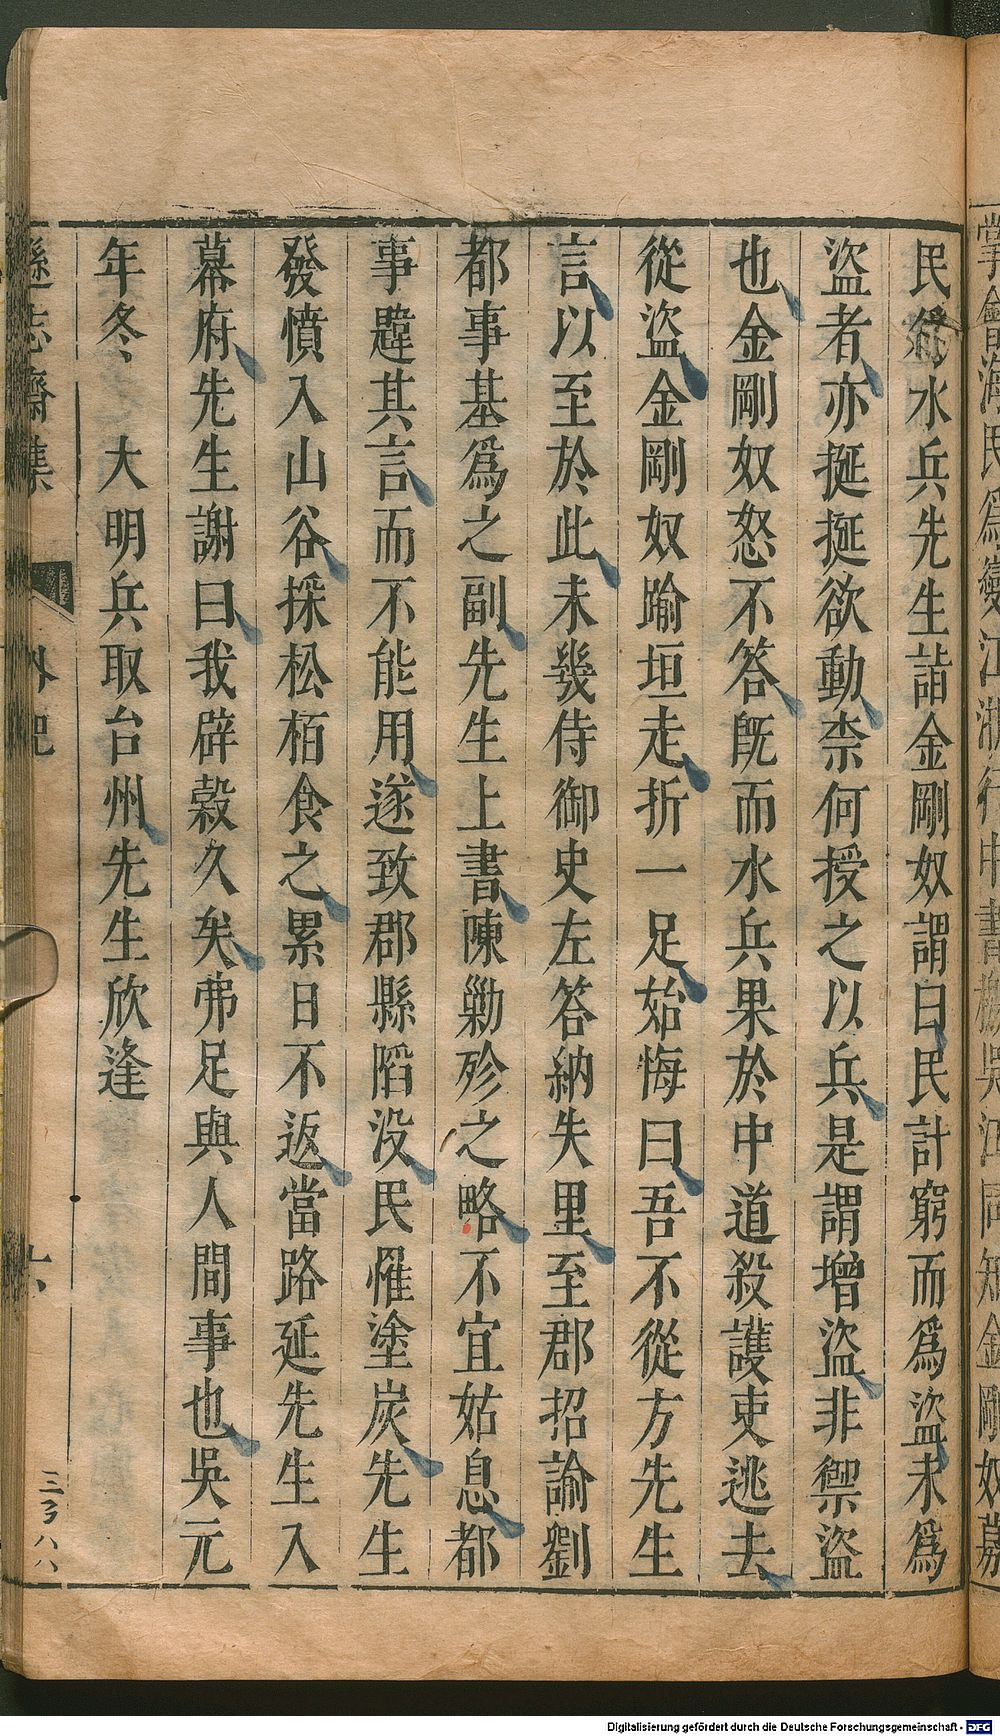 掌
民為水兵先生詣金剛奴謂曰民計窮而爲盜未爲
盜者亦挻挻欲動柰何授之以兵是謂增盜非禦盜
也金剛奴怒不答旣而水兵果於中道殺護吏逃去
從盜金剛奴踰垣走折一足始悔曰吾不從方先生
言以至於此未㡬侍御史左答納失里至郡招諭劉
都事基爲之副先生上書陳勦殄之略不宜姑息都
事韙其言而不能用遂致郡縣䧟没民罹塗炭先生
發憤入山谷採松栢食之累日不返當路延先生入
幕府先生謝曰我辟穀久矣弗足與人間事也吳元
年冬　大明兵取台州先生欣逢
遜志齋集　外紀　六
三ヲ八八
Digitalisierung gefördert durch die Deutsche Forschungsgemeinschaft - DFG